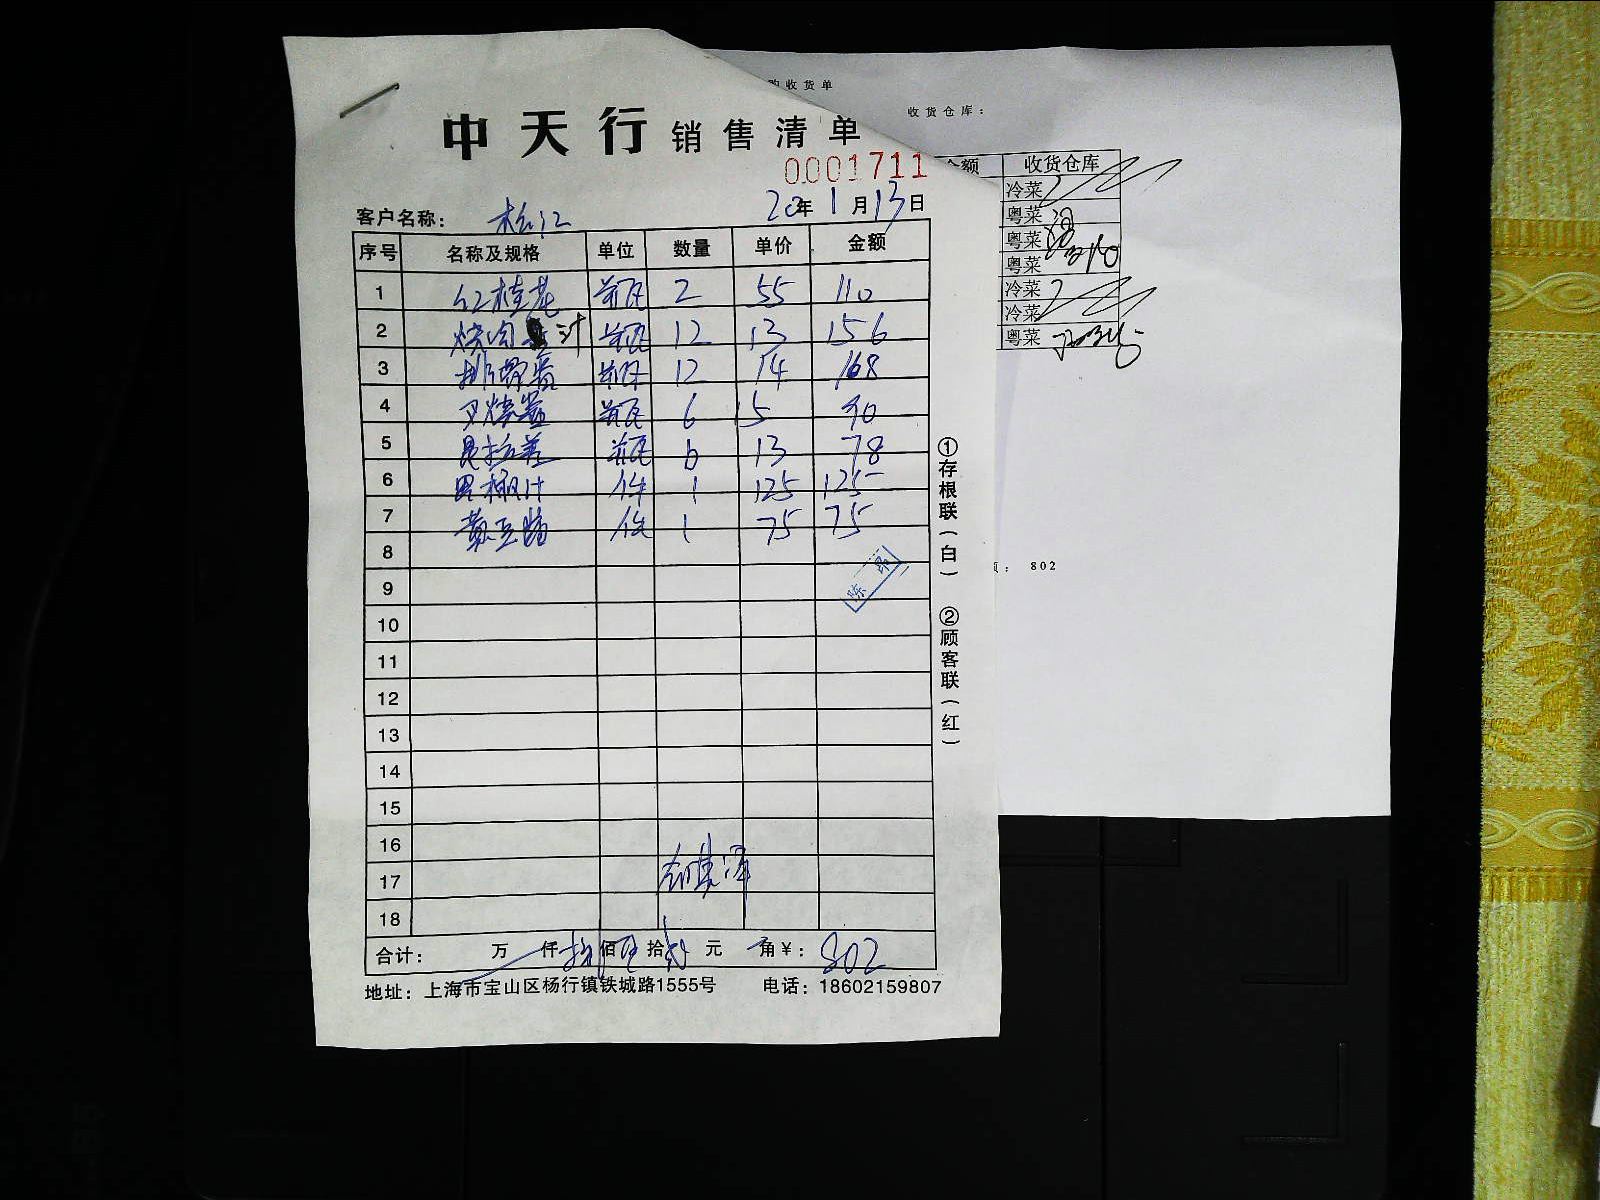 购收货单
收货仓库：
中天行 销售清单
0001711
客户名称： 松江 20年1月13日
序号 名称及规格 单位 数量 单价 金额
1 红桂花 瓶 2 55 110
2 烧肉汁 瓶 12 13 156
3 排骨酱 瓶 12 14 168
4 叉烧酱 瓶 6 15 90
5 瓶 6 13 78
6 黑椒汁 件 1 125 125
7 黄豆酱 件 1 75 75
8
9
10
11
12
13
14
15
16
17
18
合计： 万 仟 捌佰 拾 元 角 ¥： 802
地址：上海市宝山区杨行镇铁城路1555号 电话：18602159807
①存根联（白） ②顾客联（红）
金额 收货仓库
冷菜
粤菜
粤菜
粤菜
冷菜
冷菜
粤菜
： 802